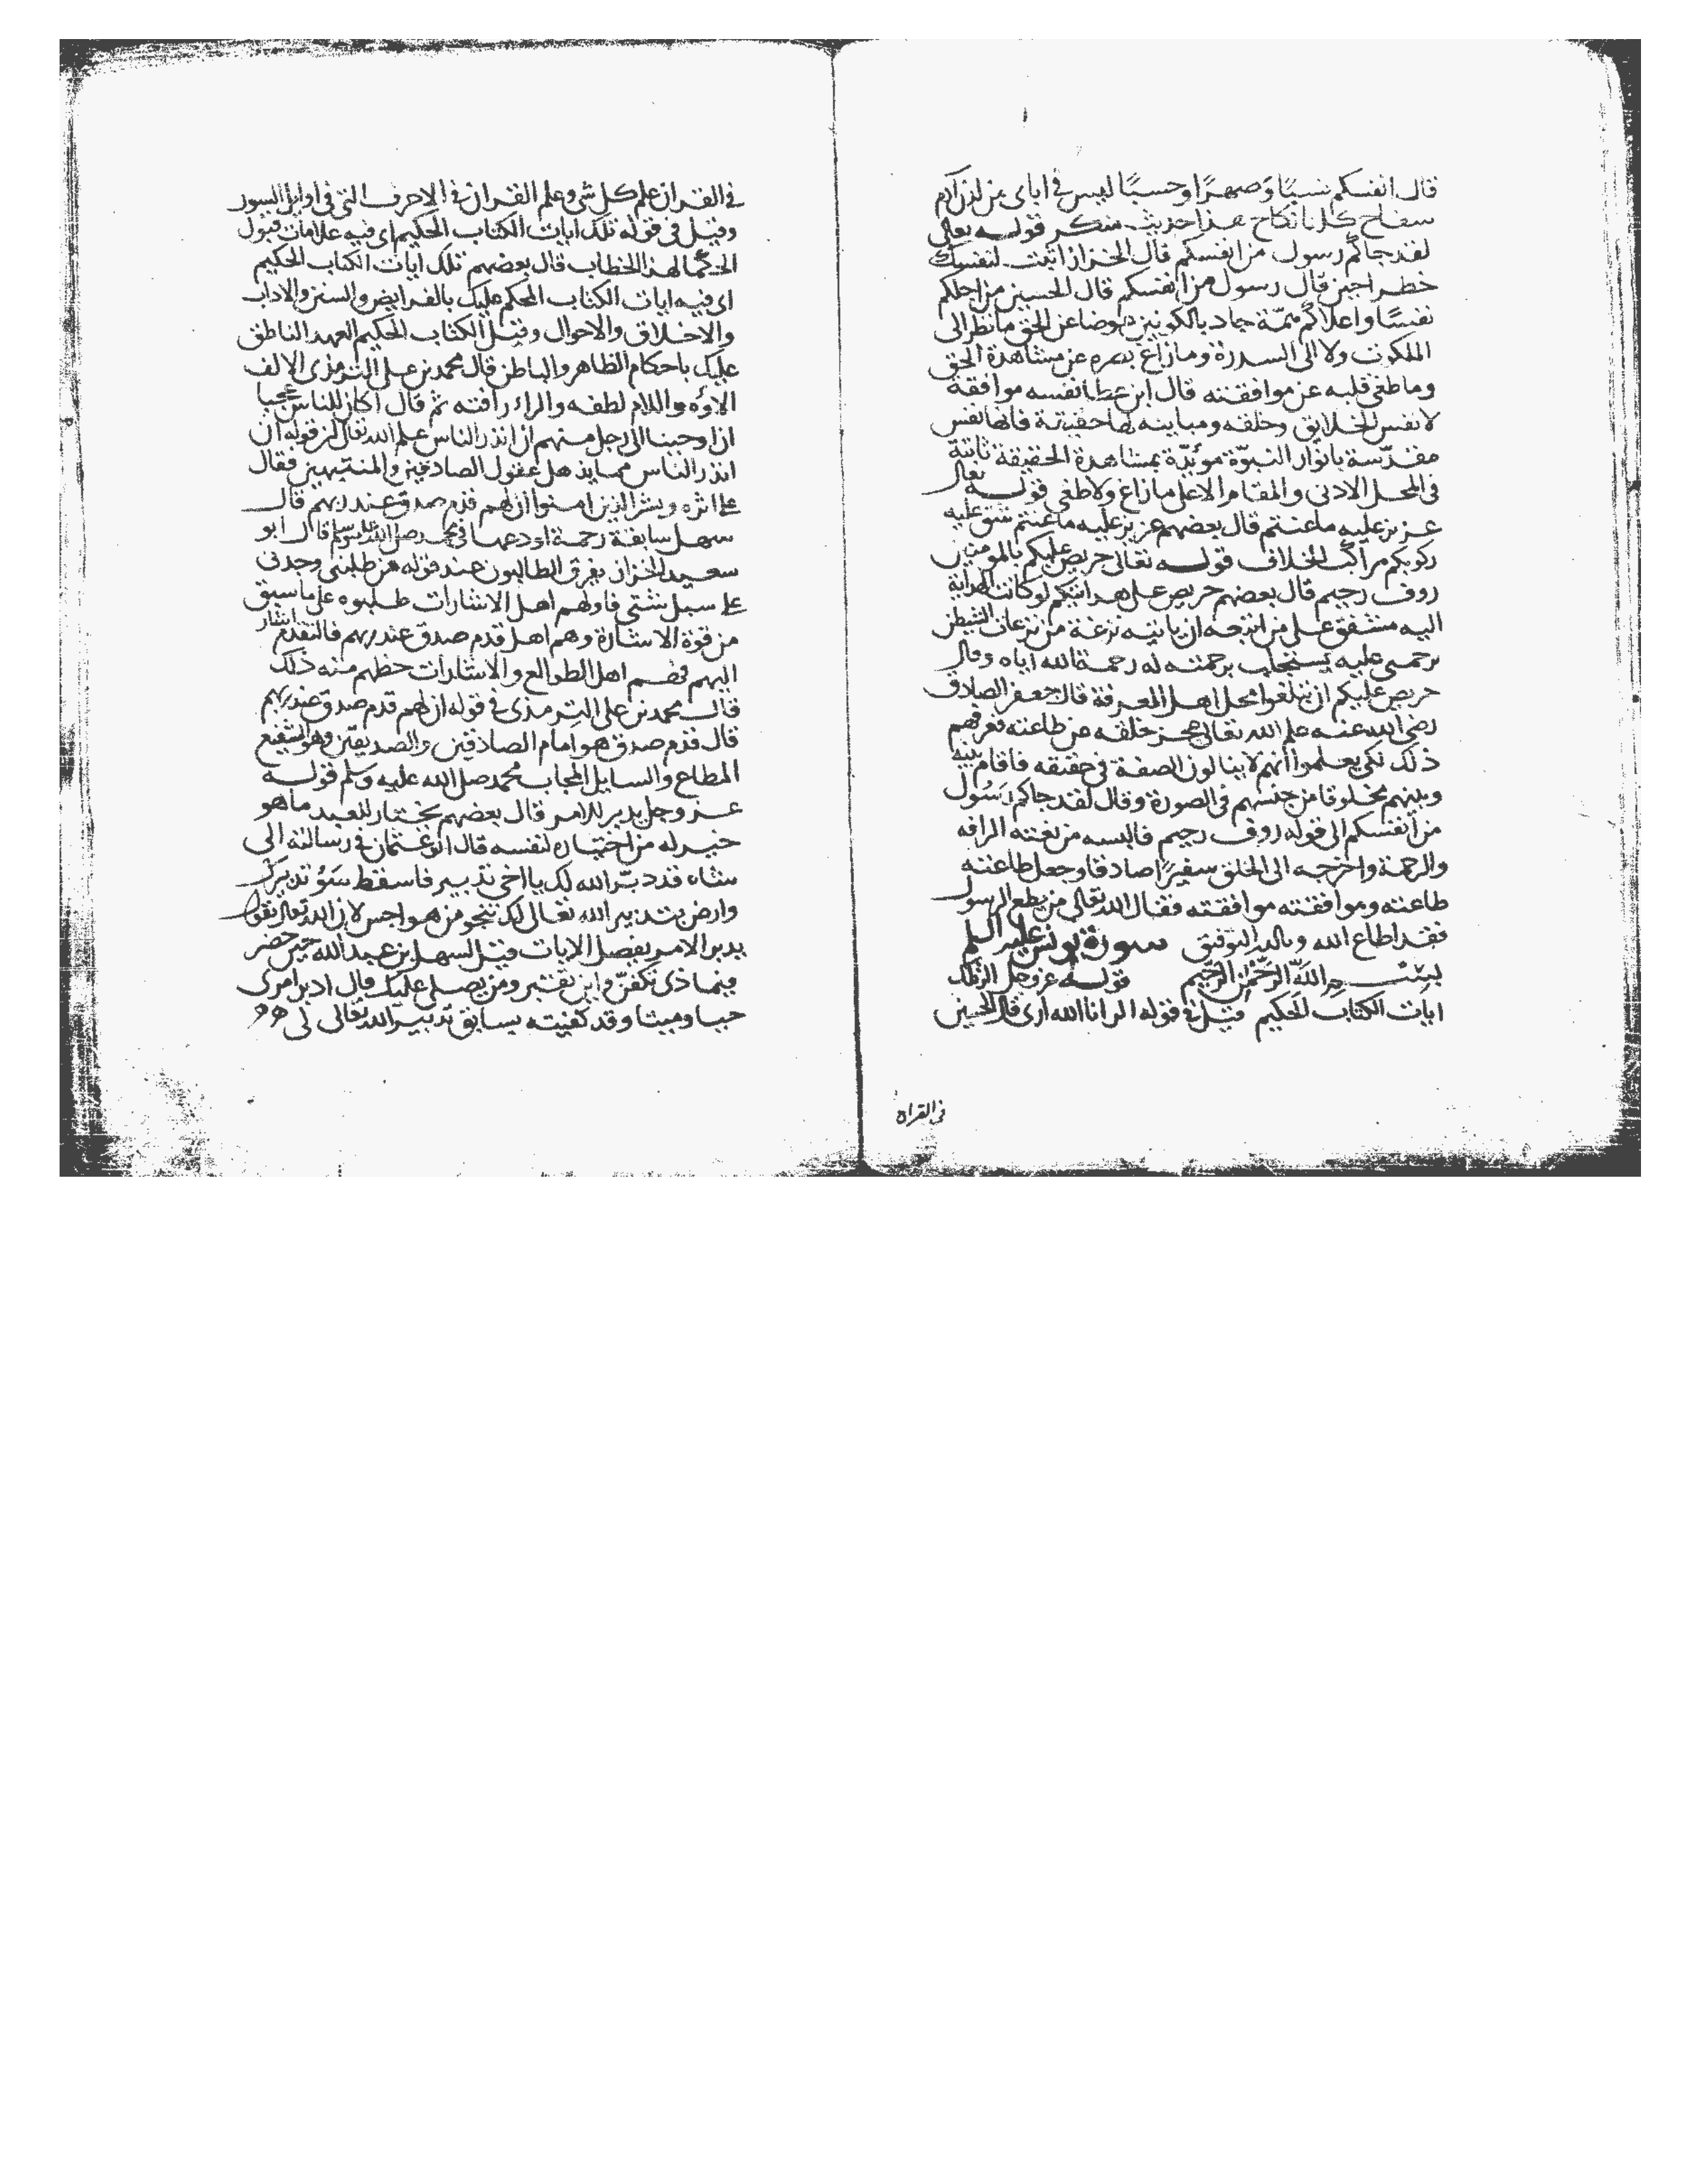 قال انفسكم نسبًا وصهرًا وحسبًا ليس في اباى من لدن آدم
سفاح كلنا نكاح هذا حديث منكر قوله تعالى
لقد جاكم رسول من انفسكم قال الخراز اثبت لنفسك
خطرا حين قال رسول من انفسكم قال الحسين من اجلكم
نفسًا واعلاكم همّة جاد بالكونين عوضا عن الحق ما نظر الى
الملكوت ولا الى السدرة وما زاغ بصره عن مشاهدة الحق
وما طغى قلبه عن موافقته قال ابن عطا نفسه موافقة
لانفس الخلايق وخلقه ومباينه لها حقيقة فانها نفس
مقدّسة بانوار النبوّة مؤيّدة بمشاهدة الحقيقة ثابتة
فى المحل الادنى والمقام الاعلى ما زاغ وما طغى قوله تعالى
عزيز عليه ما عنتم قال بعضهم عزيز عليه ما عنتم شق عليه
ركوبكم مراكب الخلاف قوله تعالى حريص عليكم بالمومنين
روف رحيم قال بعضهم حريص على هدايتكم لو كانت الهداية
اليه مشفق على من اتبعه ان ياتيه نزغة من نزغات الشيطن
ترحمى عليه يستجلب برحمته له رحمة الله اياه وقال
حريص عليكم ان تبلغوا محل اهل المعرفة قال جعفر الصادق
رضى الله عنه علم الله تعالى عجز خلقه عن طاعته فعرفهم
ذلك لكى يعلموا انهم لا ينالون الصفة فى حقيقه فاقام بينه
وبينهم مخلوقا من جنسهم فى الصورة وقال لقد جاكم رسول
من انفسكم الى قوله روف رحيم فالبسه من نعته الرافه
والرحمة واخرجه الى الخلق سفيرًا صادقا وجعل طاعته
طاعته وموافقته موافقته فقال الله تعالى من يطع الرسول
فقد اطاع الله وبالله التوفيق سورة يونس عليه السلم
بسم الله الرحمن الرحيم قوله عز وجل الر تلك
ايات الكتاب الحكيم قيل فى قوله الر انا الله ارى قال الحسين
فى القران
فى القران علم كل شى وعلم القران فى الاحرف التى فى اوايل السور
وقيل فى قوله تلك ايات الكتاب الحكيم اى فيه علامات قبول
الحكما لهذا الخطاب قال بعضهم تلك ايات الكتاب الحكيم
اى فيه ايات الكتاب المحكم عليك بالفرايض والسنن والاداب
والاخلاق والاحوال وقيل الكتاب الحكيم العهد الناطق
عليك باحكام الظاهر والباطن قال محمد بن على الترمذى الالف
الاؤه واللام لطفه والراء رافته ثم قال اكان للناس عجبا
ان اوحينا الى رجل منهم ان انذر الناس علم الله تعالى ان قوله ان
انذر الناس مما يذهل عقول الصادقين والمنتبهين فقال
على اثره وبشر الذين امنوا ان لهم قدم صدق عند ربهم قال
سهل سابقة رحمة اودعها فى محمد صلى الله عليه وسلم قال ابو
سعيد الخزاز تفرق الطالبون عند قوله من طلبنى وجدنى
على سبل شتى فاولهم اهل الاشارات طلبوه على ما سبق
من قوة الاشارة وهم اهل قدم صدق عند ربهم فالتقدم اشار
اليهم فهم اهل الطوالع والاشارات حظهم منه ذلك
قال محمد بن على الترمذى فى قوله ان لهم قدم صدق عند ربهم
قال قدم صدق هو امام الصادقين والصديقين وهو الشفيع
المطاع والسايل المجاب محمد صلى الله عليه وسلم قوله
عز وجل يدبر الامر قال بعضهم يختار للعبد ما هو
خير له من اختياره لنفسه قال ابو عثمان فى رسالته الى
شاه قد دبّر الله لك يا اخى تدبير فاسقط سوء تدبيرك
وارض بتدبير الله تعالى لك تنجو من هواجس لان الله تعالى يقول
يدبر الامر يفصل الايات قيل لسهل بن عبد الله حين حضر
فيما ذى نكفنّ واين تقبر ومن يصلى عليك قال ادبر امرى
حيا وميتا وقد كفيته بسابق تدبير الله تعالى لى